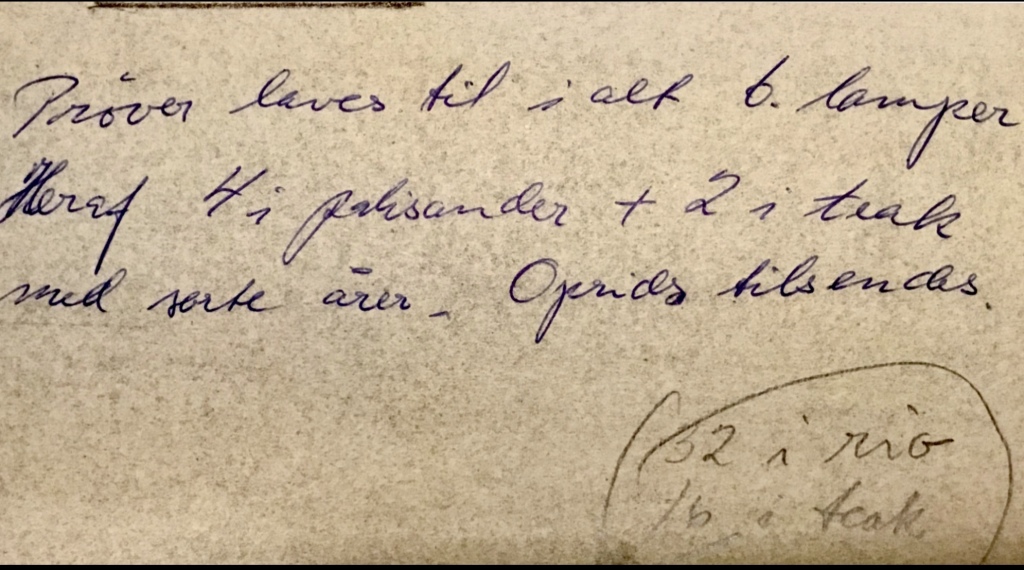 Pröver laves til i alt 6. lamper
Heraf 4 i palisander + 2 i teak
med sorte årer - Oprids tilsendes.
32 i rio
16 i teak